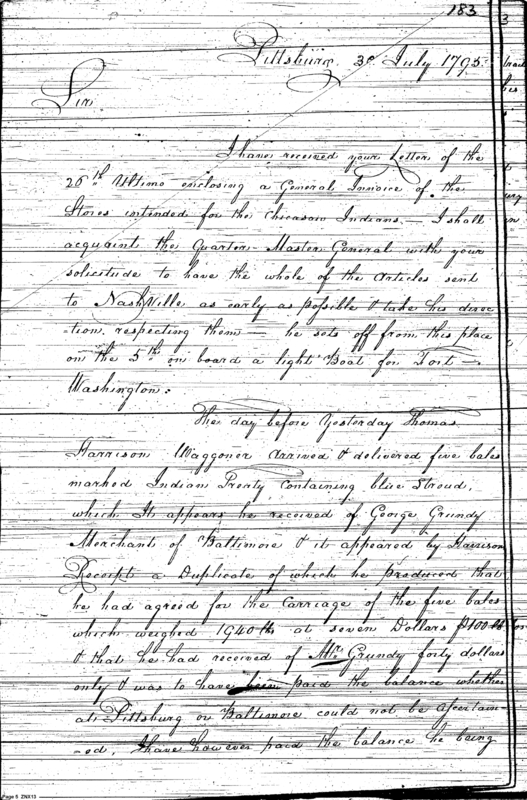 183
Pittsburg 3d July 1795
Sir
I have received your Letter of the
26th Ultimo enclosing a General Invoice of the
Stores intended for the Chicasaw Indians — I shall
acquaint the Quarter-Master General with your
solicitude to have the whole of the Articles sent
to NashVille as early as possible & take his direc
-tion, respecting them — he sets off from this place
on the 5th on board a light Boat for Fort
Washington:
The day before Yesterday Thomas
Harrison Waggoner Arrived & delivered five bales
marked Indian Treaty containing blue Stroud,
which It appears he received of George Grundy
Merchant of Baltimore & it appeared by Harrison
Receipt a Duplicate of which he produced that
he had agreed for the Carriage of the five bales
which weighed 1940 lbs at seven Dollars P 100 lb
& that he had received of Mr. Grundy forty dollars
only & was to have been paid the balance whether
at Pittsburg or Baltimore could not be Ascertain-
-ed. I have however paid the balance he being
Page 5 ZNX13